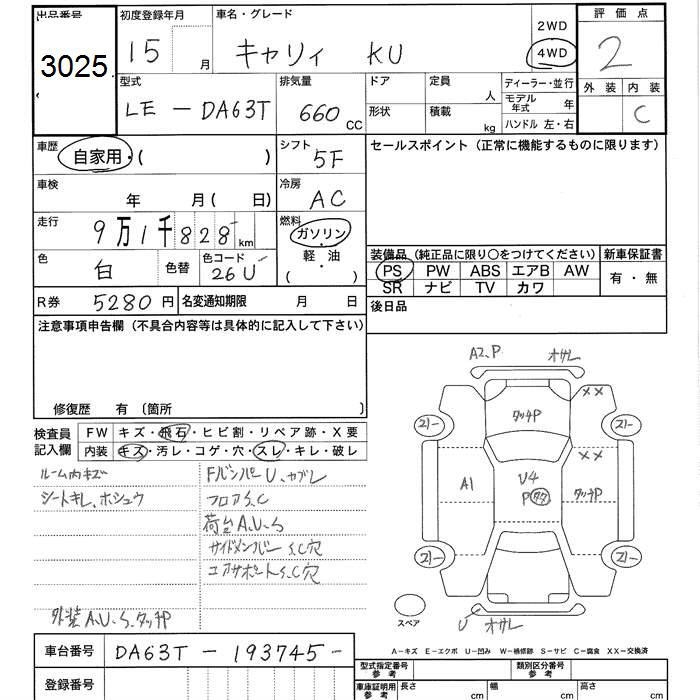 出品番号 初度登録年月 車名・グレード 2WD 評価点
3025 15 月 キャリィ KU 4WD 2
型式 排気量 ドア 定員 人 ディーラー・並行 外装 内装
LE - DA63T 660 CC 形状 積載 kg モデル年式 年 C
ハンドル 左・右
車歴 自家用・( ) シフト 5F セールスポイント (正常に機能するものに限ります)
車検 年 月 ( 日) 冷房 AC
走行 9万1千828 km 燃料 ガソリン・軽・油 ( )
色 白 色替 色コード 26U
装備品 (純正品に限り○をつけてください) 新車保証書
PS PW ABS エアB AW 有・無
SR ナビ TV カワ
R券 5280 円 名変通知期限 月 日 後日品
注意事項申告欄 (不具合内容等は具体的に記入して下さい)
修復歴 有 〔箇所 〕
検査員記入欄 FW キズ・飛石・ヒビ割・リペア跡・X要
内装 キズ・汚レ・コゲ・穴・スレ・キレ・破レ
ルーム内キズ FバンパーU、カブレ
シートキレ、ホシュウ フロアS、C
荷台A、U、S
サイドメンバーS、C穴
エアサポートS、C穴
外装A、U、S、タッチP
A2、P オサレ
XX
タッチP
21- 21-
XX
A1 U4 タッチP
P
21- 21-
スペア U オサレ
A-キズ E-エクボ U-凹み W-補修跡 S-サビ C-腐食 XX-交換済
車台番号 DA63T - 193745 -
型式指定番号 参考 類別区分番号 参考
登録番号 車庫証明用 参考 長さ cm 幅 cm 高さ cm